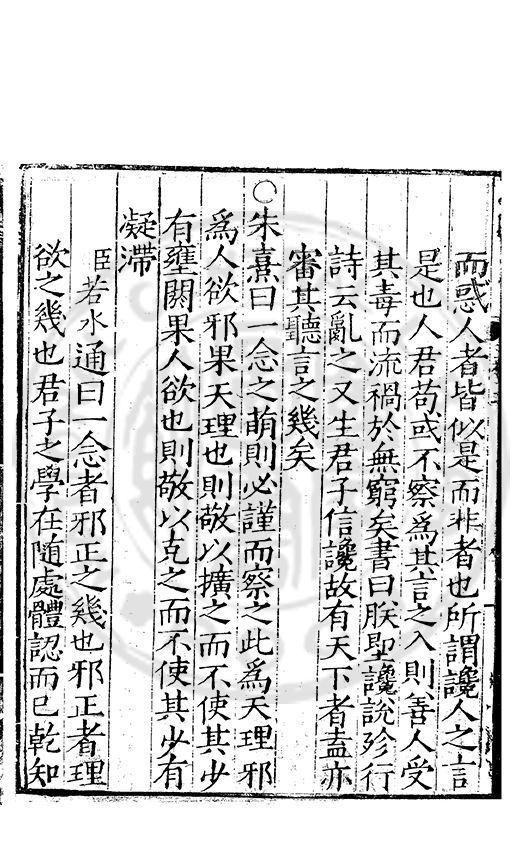 而惑人者皆似是而非者也所謂讒人之言
是也人君苟或不察爲其言之入則善人受
其毒而流禍於無窮矣書曰朕堲讒說殄行
詩云亂之又生君子信讒故有天下者盍亦
審其聽言之幾矣
○朱熹曰一念之萌則必謹而察之此爲天理邪
爲人欲邪果天理也則敬以擴之而不使其少
有壅閼果人欲也則敬以克之而不使其少有
凝滯
臣若水通曰一念者邪正之幾也邪正者理
欲之幾也君子之學在隨處體認而已乾知